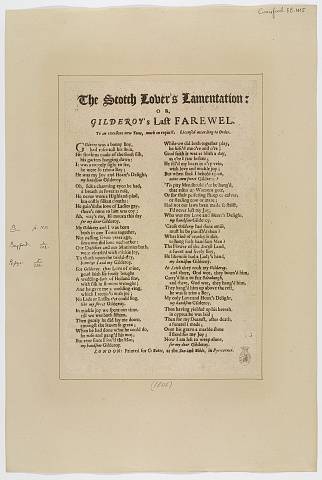 The Scotch Lover's Lamentation:
OR,
GILDEROY's Last FAREWEL.
To an excellent new Tune, much in request. Licensed according to Order.
Gilderoy was a bonny Boy,
had roses tull his shun,
His stockins made of the finest silk,
his garters hanging down:
It was a comely sight to see,
he were so trim a Boy;
He was my Joy and Heart's Delight,
my handsom Gilderoy.
Oh, sike a charming eyen he had,
a breath as sweet as rose,
He never wore a Highland plad,
but costly silken cloaths:
He gain'd the love of Ladies gay,
there's none to him was coy:
Ah, wa's me, I'se mourn this day
for my dear Gilderoy.
My Gilderoy and I was born
both in one Town together,
Not passing seven years ago,
since one did love each other:
Our Daddies and our Mammies both,
were cloath'd with mickle joy,
To think upon the bridal day,
betwixt I and my Gilderoy.
For Gilderoy, that Love of mine,
gued faith he freely bought
A wedding-sark of Holland fine,
with silk in flowers wrought;
And he gave me a wedding-ring,
which I receiv'd with joy;
No Lads or Lasses e'er could sing,
like my sweet Gilderoy.
In mickle joy we spent our time,
till we was both fifteen,
Then gently he did lay me down,
amongst the leaves so green;
When he had done what he could do,
he rose and gang'd his way,
But ever since I lov'd the Man,
my handsom Gilderoy.
While we did both together play,
he kiss'd me o'er and o'er;
Gued faith it was as blith a day,
as e'er I saw before;
He fill'd my heart in e'ry vein,
with love and mickle joy;
But when shall I behold again,
mine own sweet Gilderoy?
'Tis pity Men should e'er be hang'd,
that takes up Womens geer,
Or for their pilfering Sheep or calves,
or stealing cow or mare;
Had not our laws been made so strict,
I'd never lost my Joy,
Who was my Love and Heart's Delight,
my handsom Gilderoy.
'Cause Gilderoy had done amiss,
must he be punish'd then?
What kind of cruelty is this,
to hang such handsom Men?
The Flower of the Scotch Land,
a sweet and lovely Boy,
He likewise had a Lady's hand,
my handsom Gilderoy.
At Leith they took my Gilderoy,
and there, God wot, they bang'd him,
Carry'd him to fair Edenburgh,
and there, God wot, they hang'd him.
They hang'd him up above the rest,
he was so trim a Boy,
My only Love and Heart's Delight,
my handsom Gilderoy.
Then having yielded up his breath,
in cypress he was laid;
Then for my Dearest, after death,
a funeral I made;
Over his grave a marble stone
I fixed for my Joy;
Now I am left to weep alone,
for my dear Gilderoy.
LONDON: Printed for C. Bates, at the Sun and Bible, in Pye-corner.